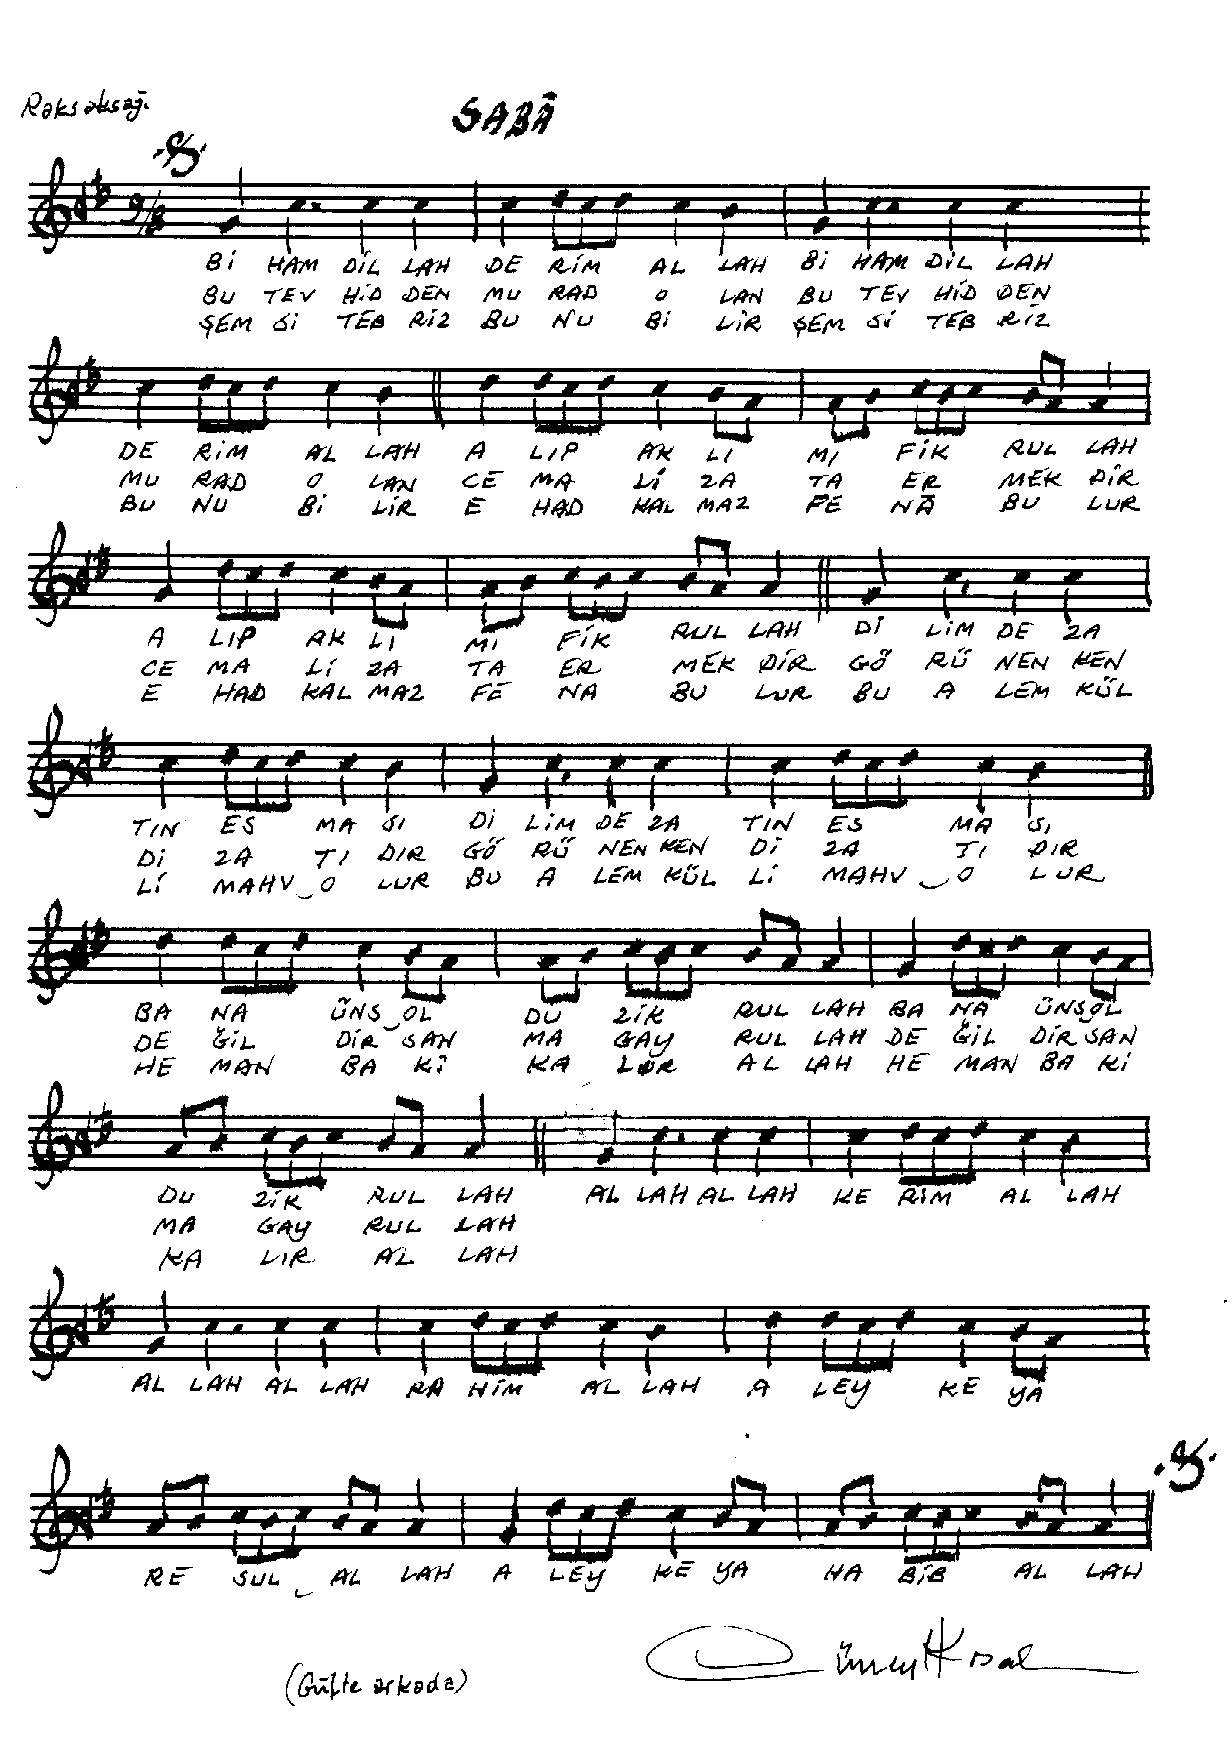 Raksaksağı.
SABÂ
9/8
BI HAM DİL LAH DE RİM AL LAH BI HAM DİL LAH
BU TEV HİD DEN MU RAD O LAN BU TEV HİD DEN
ŞEM Sİ TEB RİZ BU NU Bİ LİR ŞEM Sİ TEB RİZ
DE RİM AL LAH A LIP AK LI MI FİK RUL LAH
MU RAD O LAN CE MA Lİ ZA TA ER MEK DİR
BU NU Bİ LİR E HAD KAL MAZ FE NÂ BU LUR
A LIP AK LI MI FİK RUL LAH DI LİM DE ZA
CE MA LI ZA TA ER MEK DİR GÖ RÜ NEN KEN
E HAD KAL MAZ FE NA BU LUR BU A LEM KÜL
TIN ES MA SI DI LİM DE ZA TIN ES MA SI
Dİ ZA TI DIR GÖ RÜ NEN KEN Dİ ZA TI DIR
Lİ MAHV_O LUR BU A LEM KÜL Lİ MAHV_O LUR
BA NA ÜNS_OL DU ZİK RUL LAH BA NA ÜNS_OL
DE ĞİL DİR SAN MA GAY RUL LAH DE ĞİL DİR SAN
HE MAN BA Kİ KA LIR AL LAH HE MAN BA Kİ
DU ZİK RUL LAH AL LAH AL LAH KE RİM AL LAH
MA GAY RUL LAH
KA LIR AL LAH
AL LAH AL LAH RA HİM AL LAH A LEY KE YA
RE SUL_AL LAH A LEY KE YA HA BİB AL LAH
(Güfte arkada)
Cüneyt Kosal